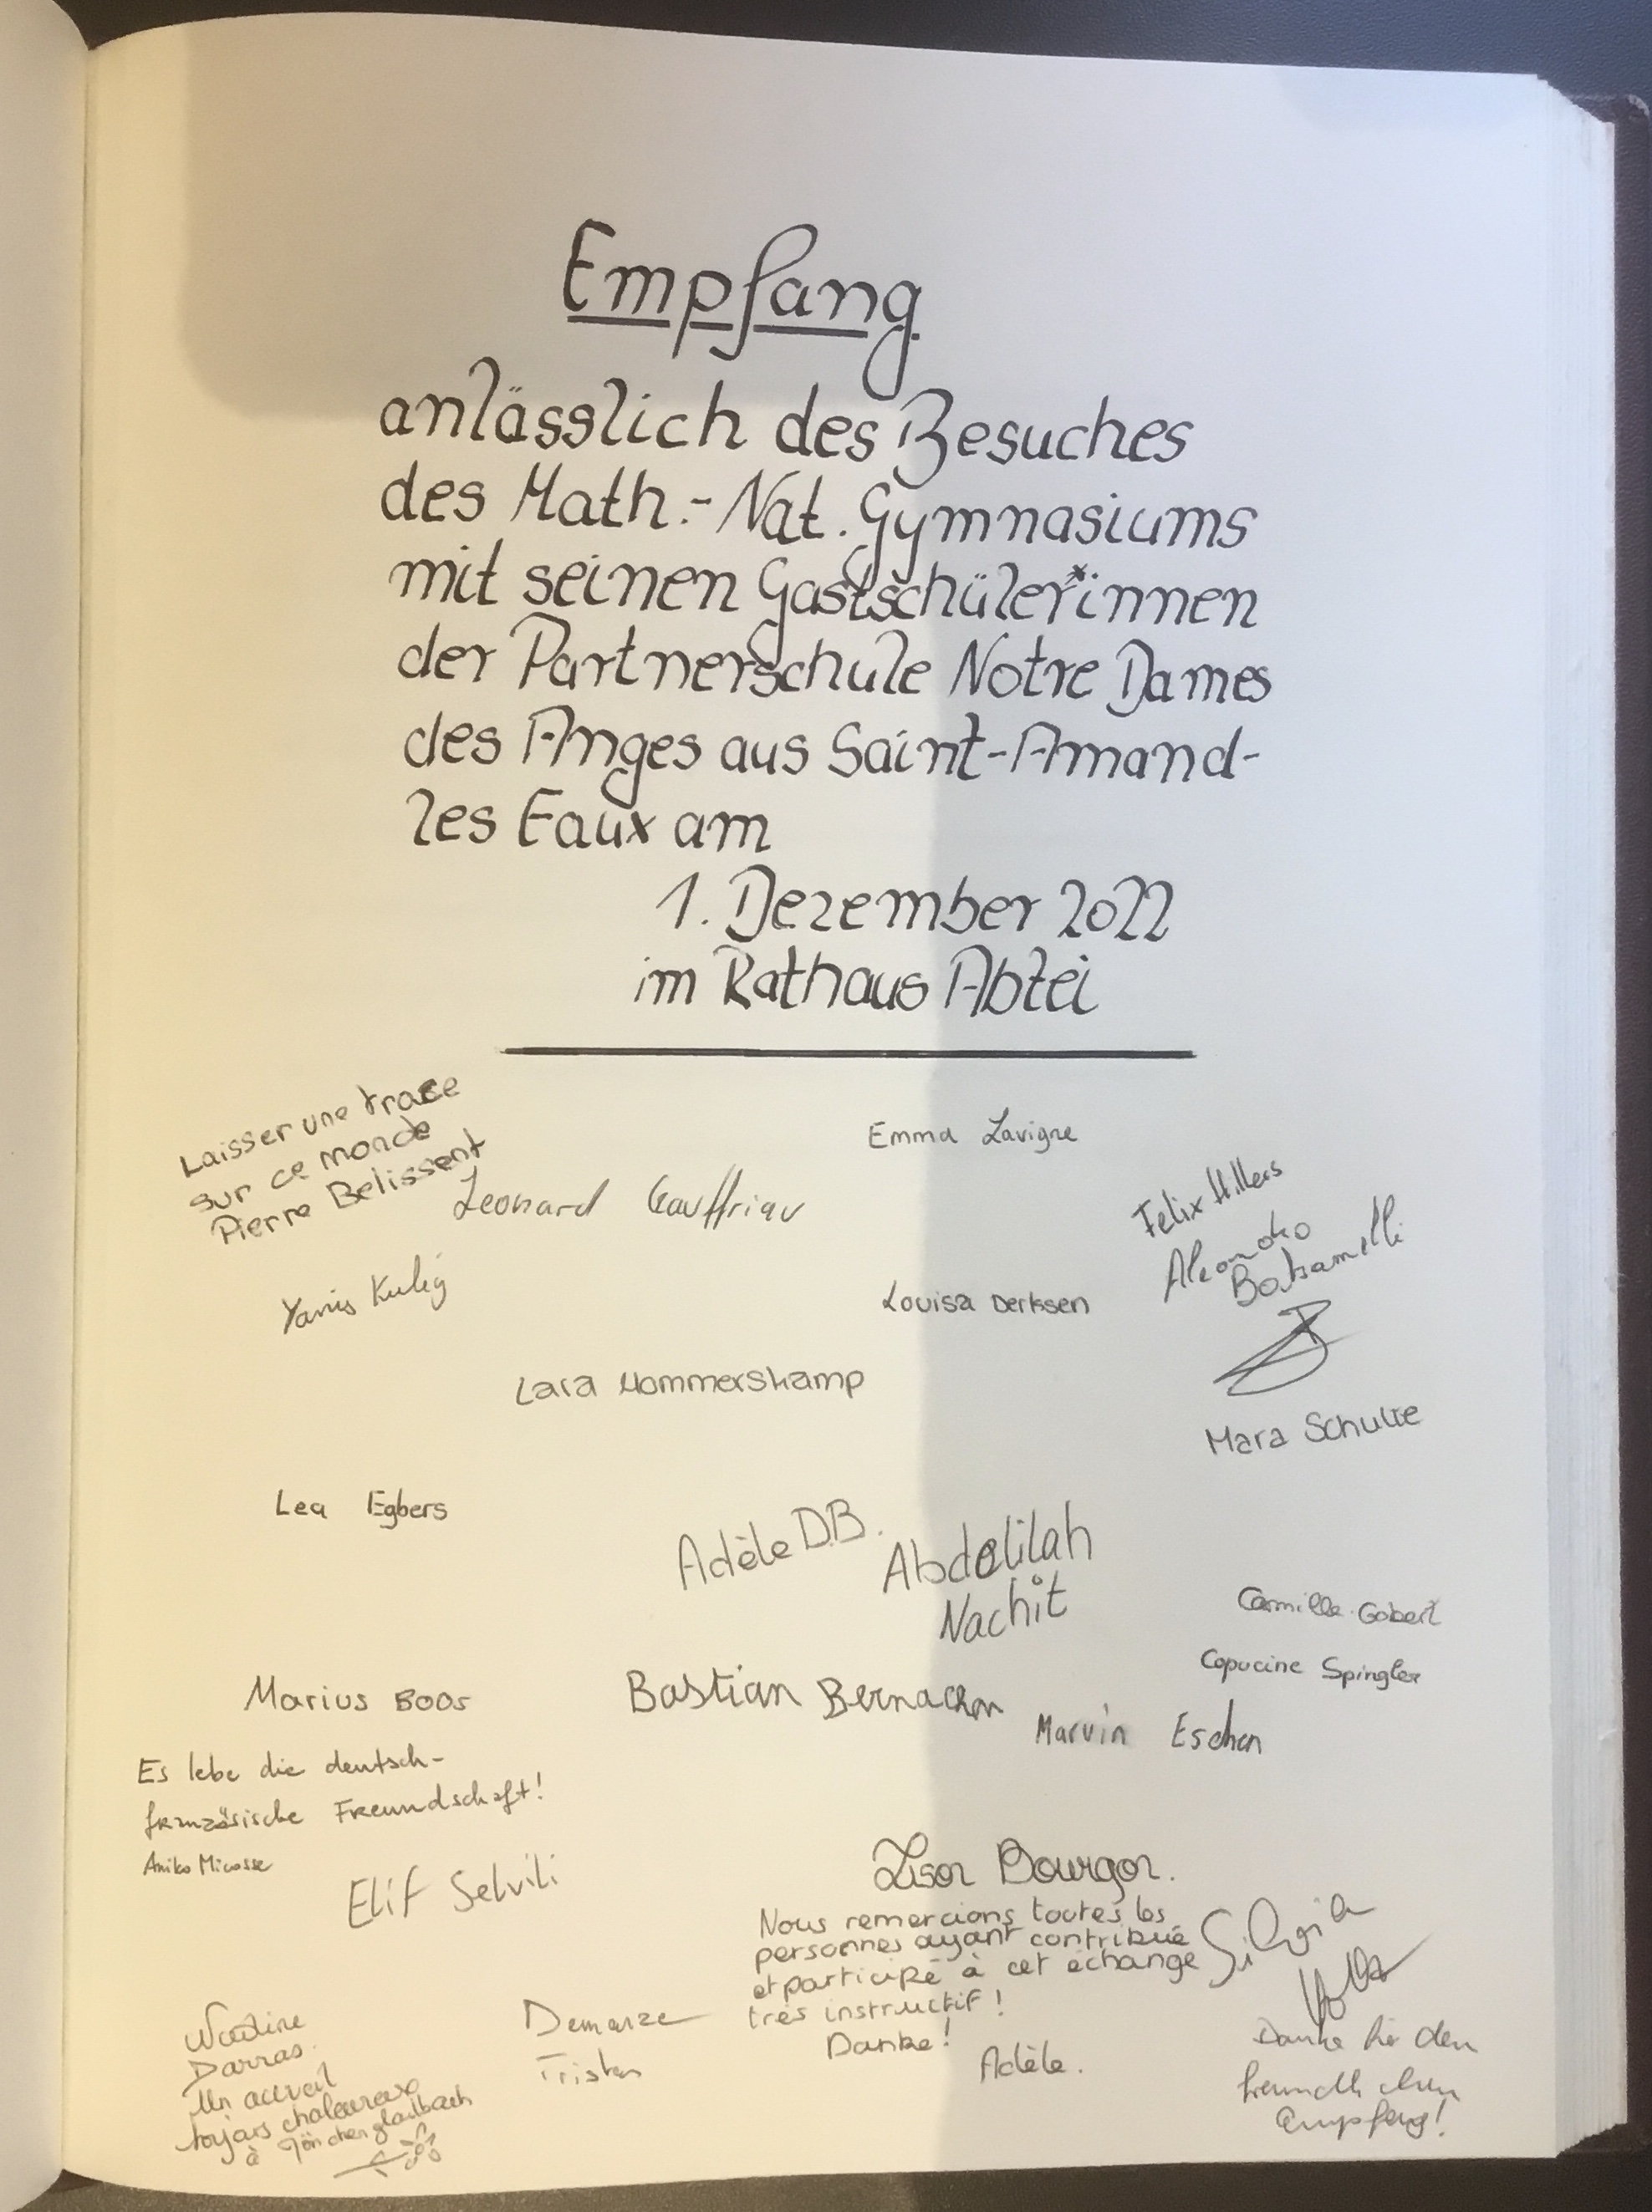 Empfang
anlässlich des Besuches
des Math.-Nat. Gymnasiums
mit seinen Gastschüler*innen
der Partnerschule Notre Dames
des Anges aus Saint-Amand-
les Eaux am
1. Dezember 2022
im Rathaus Abtei
Laisser une trace
sur ce monde
Pierre Belissent
Emma Lavigne
Leonard Gauffriau
Felix Hillers
Yanis Kulig
Louisa Derksen
Lara Hommerskamp
Mara Schulte
Lea Egbers
Adèle D.B.
Abdelilah
Nachit
Camille Gobert
Capucine Spingler
Marius Boos
Bastian
Marvin Eschen
Es lebe die deutsch-
französische Freundschaft!
Elif Selvili
Bourgor.
Nous remercions toutes les
personnes ayant contribué
et participé à cet échange
très instructif!
Danke!
Adèle.
Silvia
Danke für den
freundlichen
Empfang!
Demarze
Tristan
Darras.
Un accueil
toujars chaleureux
à Mönchengladbach